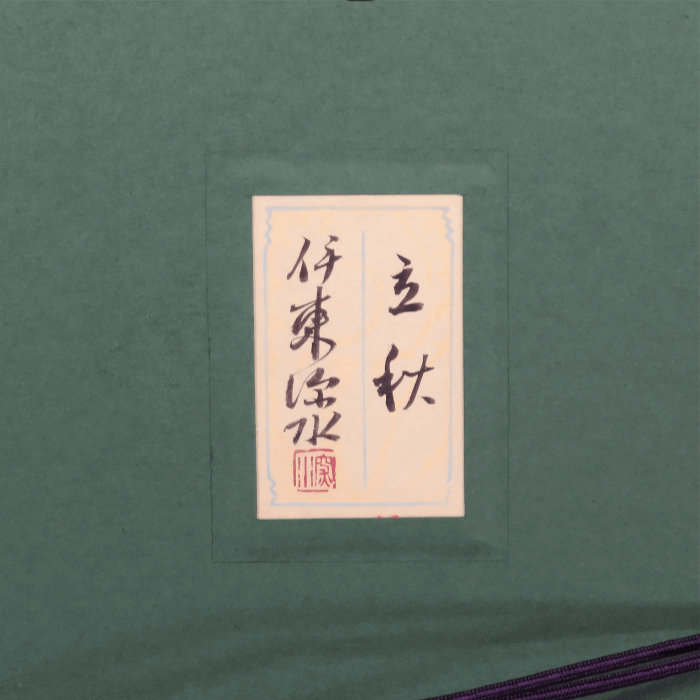 立秋
伊東深水